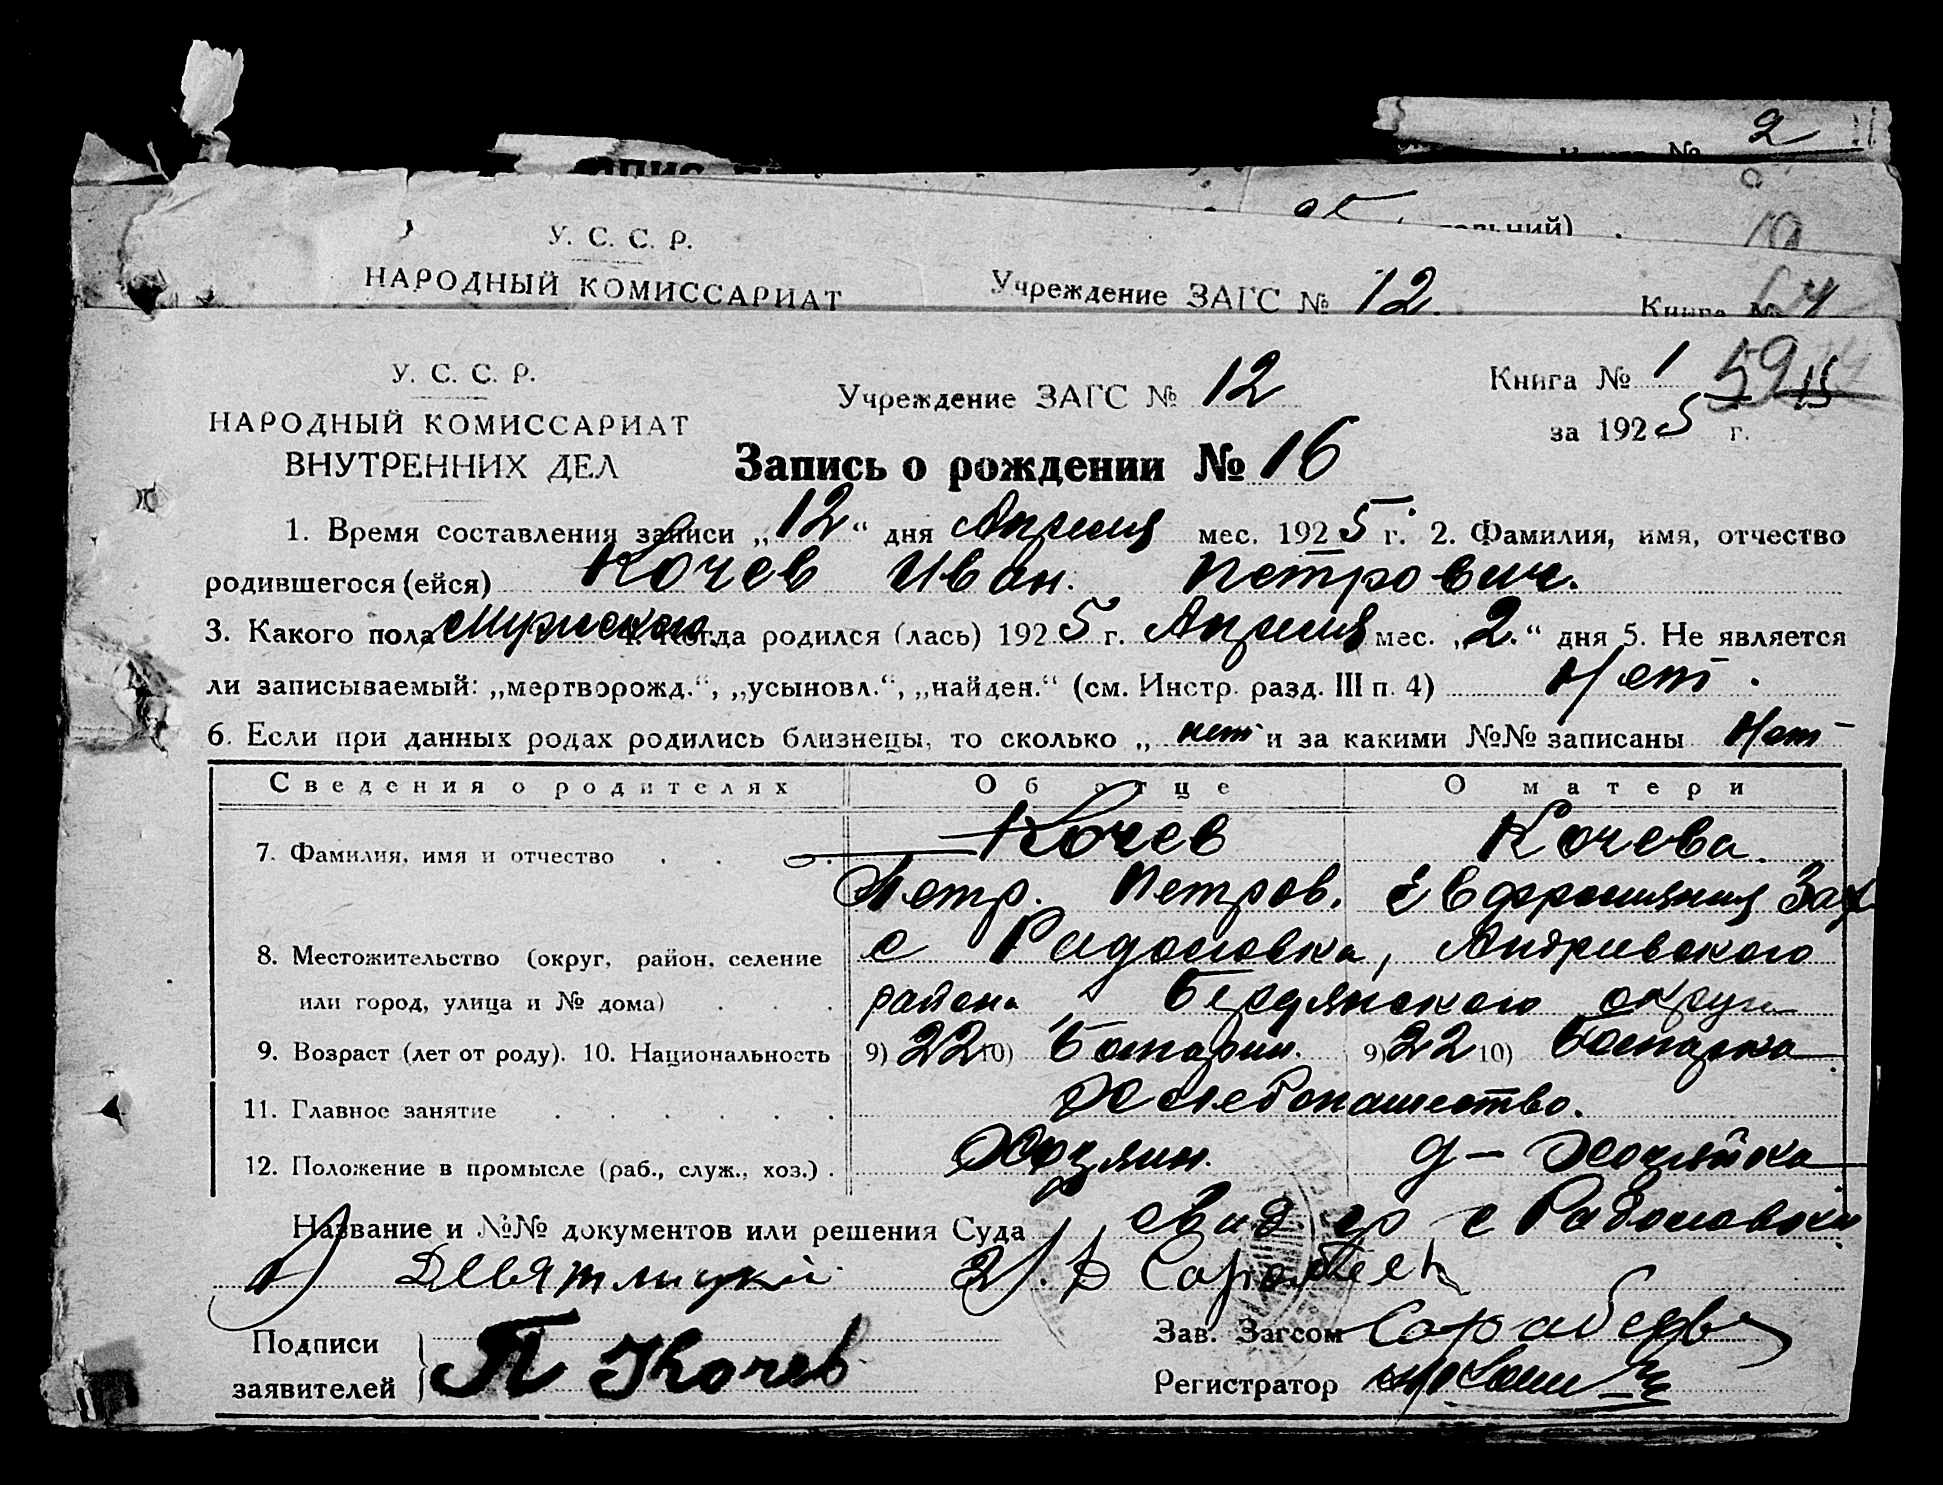 2
У. С. С. Р.
НАРОДНЫЙ КОМИССАРИАТ
Учреждение ЗАГС № 12.
У. С. С. Р.
НАРОДНЫЙ КОМИССАРИАТ
ВНУТРЕННИХ ДЕЛ
Учреждение ЗАГС № 12
Книга № 1 59
за 1925 г.
Запись о рождении № 16
1. Время составления записи „12“ дня Апреля мес. 1925 г. 2. Фамилия, имя, отчество
родившегося (ейся) Кочев Иван Петрович.
3. Какого пола мужского 4. Когда родился (лась) 1925 г. Апреля мес. „2.“ дня 5. Не является
ли записываемый: „мертворожд.“, „усыновл.“, „найден.“ (см. Инстр. разд. III п. 4) Нет.
6. Если при данных родах родились близнецы, то сколько „ нет и за какими №№ записаны Нет
Сведения о родителях Об отце О матери
7. Фамилия, имя и отчество Кочев Кочева.
Петр. Петров. Евфросиния Зах
8. Местожительство (округ, район, селение с Радоловка, Андриевского
или город, улица и № дома) района Бердянского округа
9. Возраст (лет от роду). 10. Национальность 9) 22 10) Болгарин. 9) 22 10) Болгарка
11. Главное занятие Хлебопашество.
12. Положение в промысле (раб., служ., хоз.) Хозяин. д - Хозяйка
Название и №№ документов или решения Суда
Подписи
заявителей П Кочев
Зав. Загсом
Регистратор